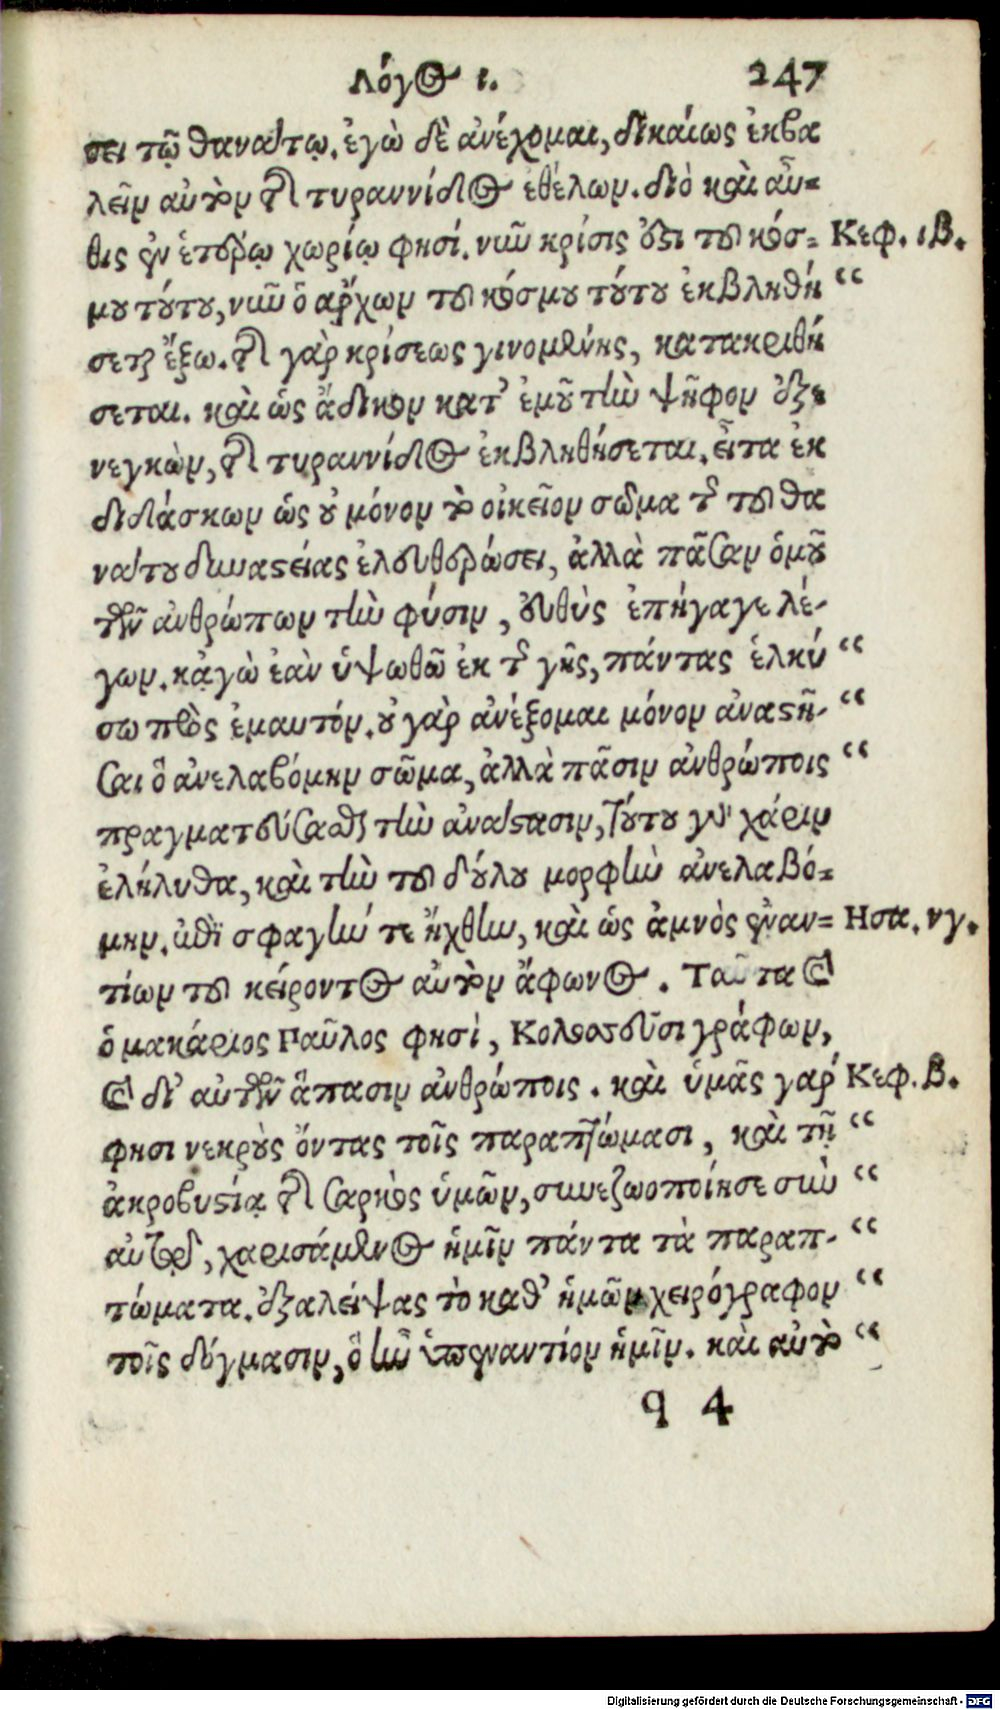 Λόγος ι. 247
σει τῷ θανάτῳ. ἐγὼ δὲ ἀνέχομαι, δικαίως ἐκβα
λεῖν αὐτὸν τῆς τυραννίδος ἐθέλων. διὸ καὶ αὖ=
θις ἐν ἑτέρῳ χωρίῳ φησί. νῦν κρίσις ἐστὶ τοῦ κόσ= Κεφ. ιβ.
μου τούτου, νῦν ὁ ἄρχων τοῦ κόσμου τούτου ἐκβληθή “
σεται ἔξω. τῆς γὰρ κρίσεως γινομένης, κατακριθή
σεται. καὶ ὡς ἄδικον κατ’ ἐμοῦ τὴν ψῆφον ἐξε
νεγκὼν, τῆς τυραννίδος ἐκβληθήσεται. εἶτα ἐκ
διδάσκων ὡς οὐ μόνον τὸ οἰκεῖον σῶμα τῆς τοῦ θα
νάτου δυναστείας ἐλευθερώσει, ἀλλὰ πᾶσαν ὁμοῦ
τῶν ἀνθρώπων τὴν φύσιν, εὐθὺς ἐπήγαγε λέ-
γων. κᾀγὼ ἐὰν ὑψωθῶ ἐκ τῆς γῆς, πάντας ἑλκύ “
σω πρὸς ἐμαυτόν. οὐ γὰρ ἀνέξομαι μόνον ἀναστῆ- “
σαι ὃ ἀνελαβόμην σῶμα, ἀλλὰ πᾶσιν ἀνθρώποις “
πραγματεύσασθαι τὴν ἀνάστασιν, τούτου γὰρ χάριν
ἐλήλυθα, καὶ τὴν τοῦ δούλου μορφὴν ἀνελαβό=
μην. ἐπὶ σφαγήν τε ἤχθην, καὶ ὡς ἀμνὸς ἐναν= Ησα. νγ.
τίων τοῦ κείροντος αὐτὸν ἄφωνος. Ταῦτα καὶ
ὁ μακάριος Παῦλος φησὶ, Κολοσσεῦσι γράφων,
καὶ δι’ αὐτῶν ἅπασιν ἀνθρώποις. καὶ ὑμᾶς γάρ Κεφ. β.
φησι νεκροὺς ὄντας τοῖς παραπτώμασι, καὶ τῇ “
ἀκροβυστίᾳ τῆς σαρκὸς ὑμῶν, συνεζωοποίησε σὺν “
αὐτῷ, χαρισάμενος ἡμῖν πάντα τὰ παραπ- “
τώματα. ἐξαλείψας τὸ καθ’ ἡμῶν χειρόγραφον “
τοῖς δόγμασιν, ὃ ἦν ὑπεναντίον ἡμῖν. καὶ αὐτὸ “
q 4
Digitalisierung gefördert durch die Deutsche Forschungsgemeinschaft - DFG